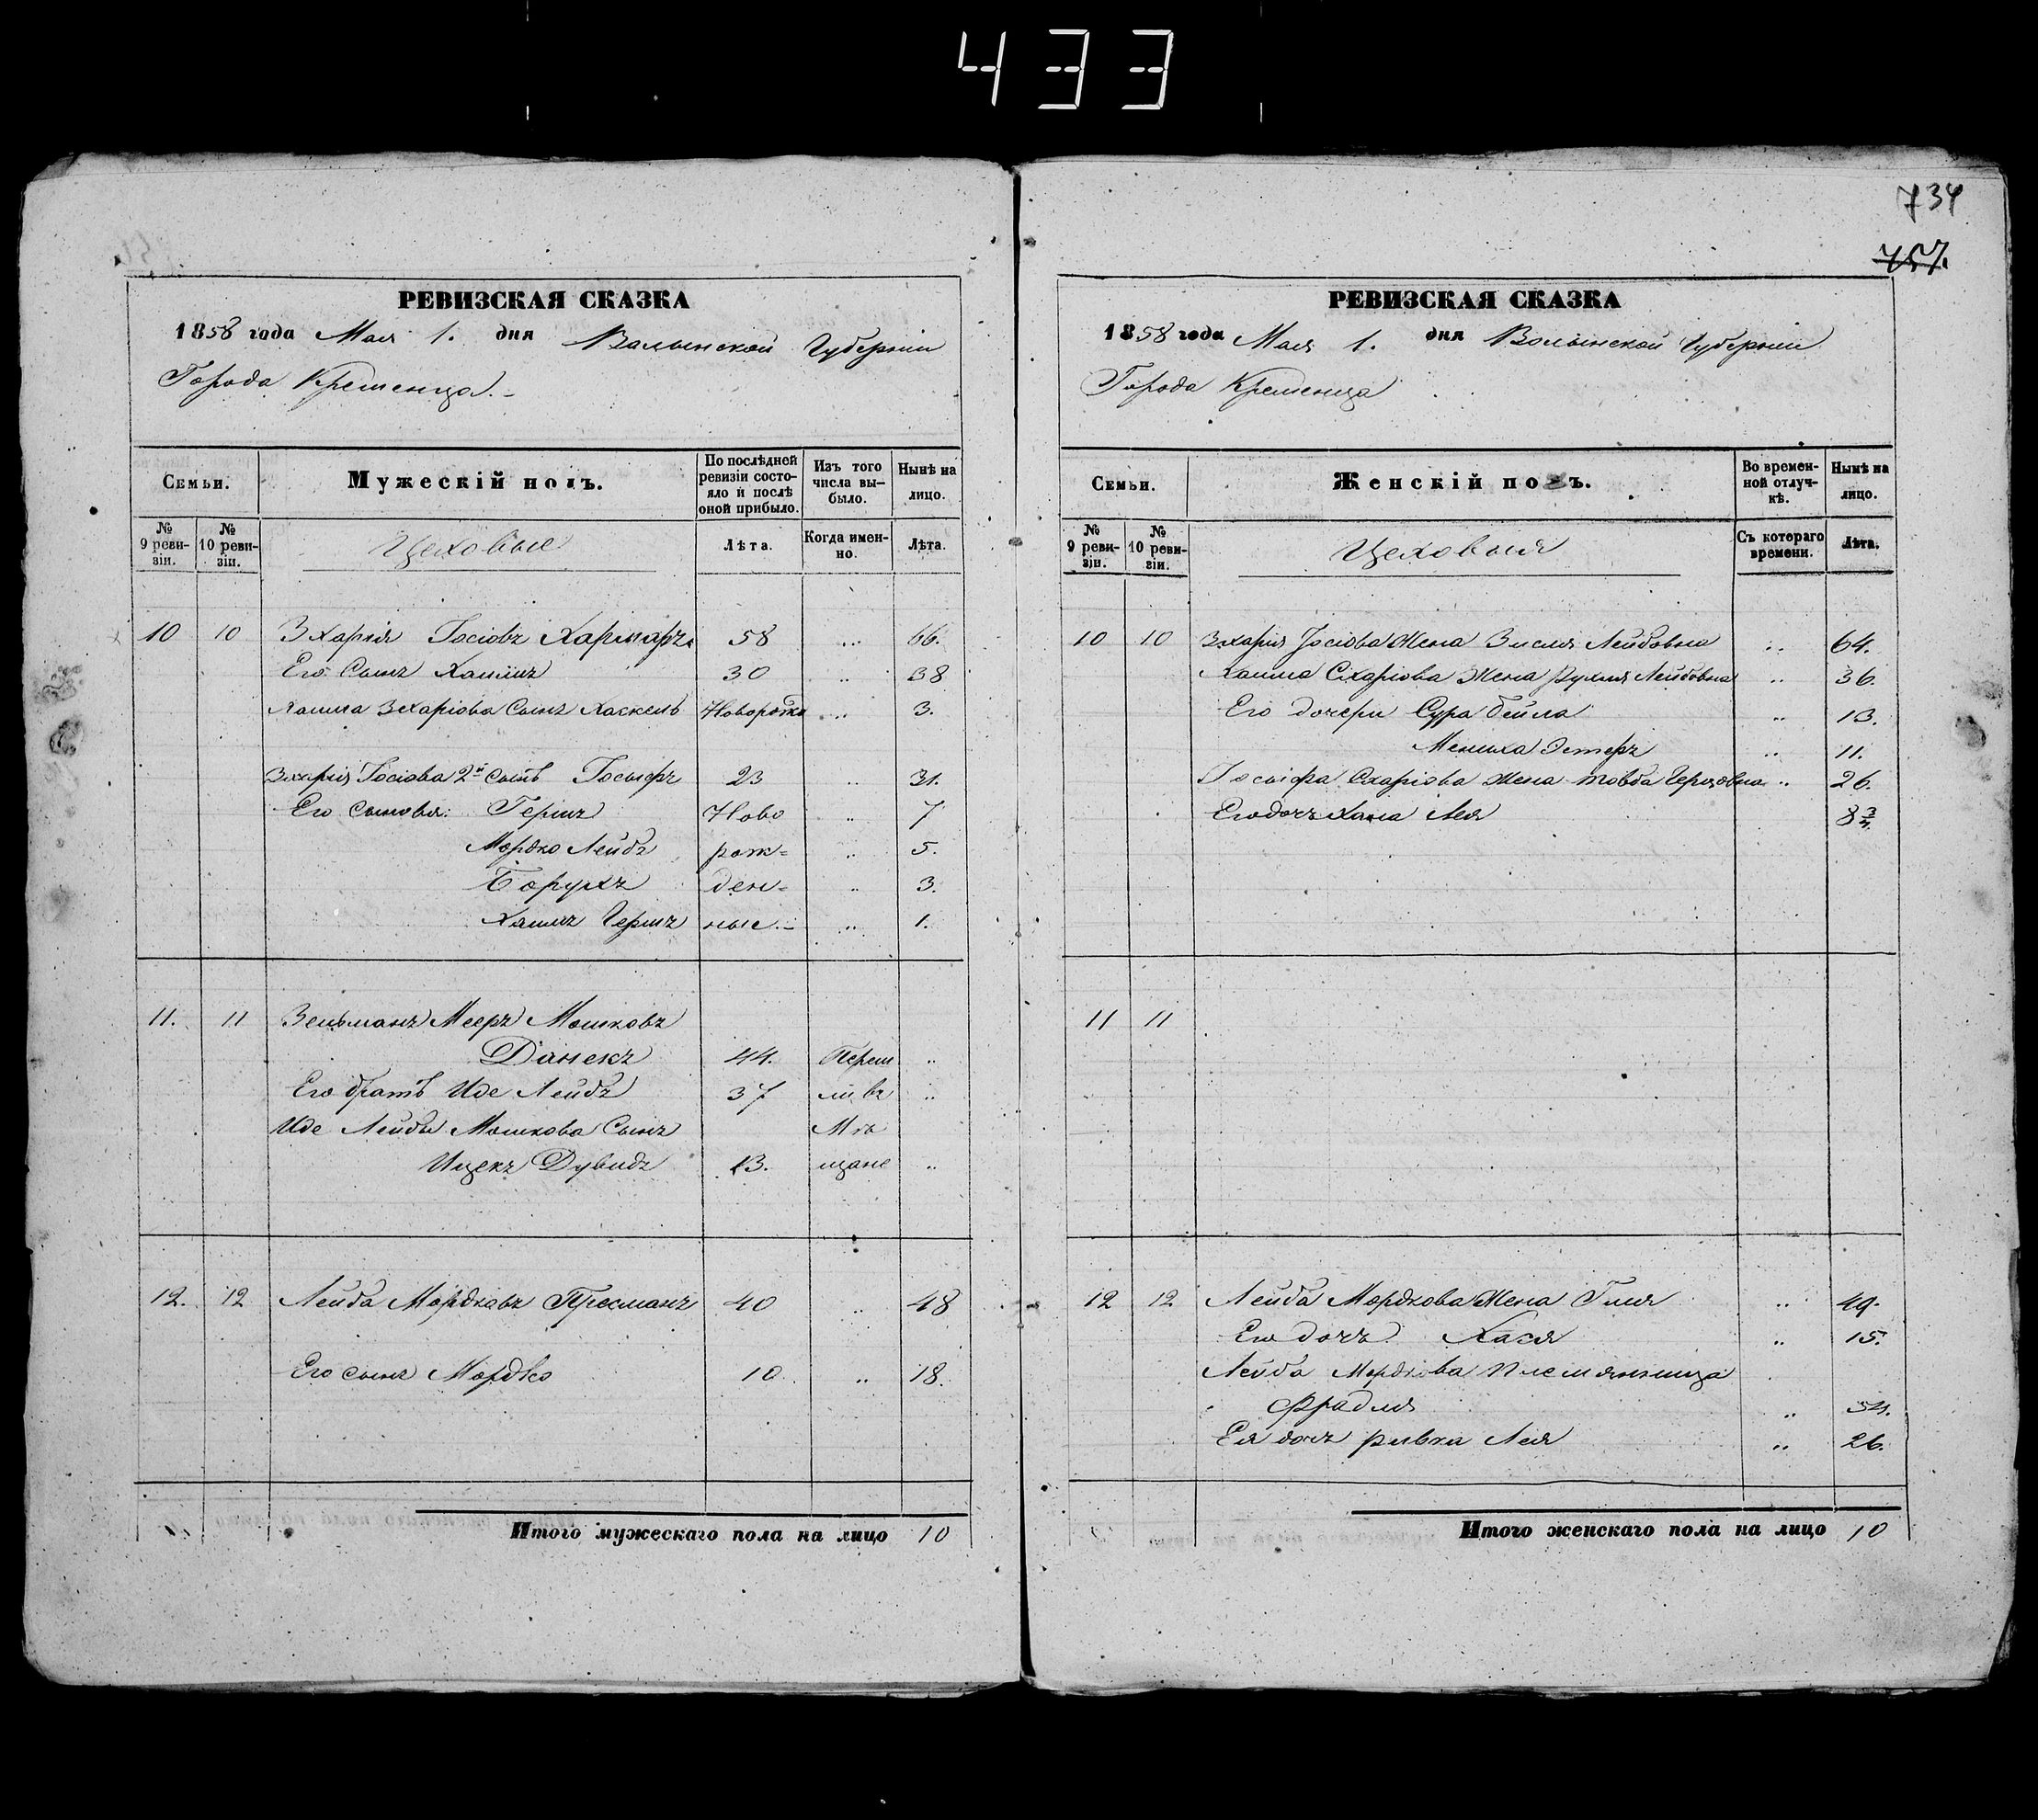 433
734
757.
РЕВИЗСКАЯ СКАЗКА
1858 года Мая 1. дня Волынской Губерніи
Города Кременца.
Семьи.
Мужескій полъ.
По послѣдней ревизіи состояло и послѣ оной прибыло.
Изъ того числа выбыло.
Нынѣ на лицо.
№ 9 ревизіи.
№ 10 ревизіи.
Цеховые
Лѣта.
Когда именно.
Лѣта.
10 10 Зхарія Іосіовъ 58 „ 66.
Его Сынъ Хаимъ 30 „ 38
Хаима Зхаріова Сынъ Хаскель Новорожд „ 3.
Зхарія Іосіова 2й сынъ Іосифъ 23 „ 31.
Его сыновья: Гершъ Ново „ 7
Мордко Лейбъ рож= „ 5.
Борухъ ден= „ 3.
Хаимъ Гершъ ные. „ 1.
11. 11 Зельманъ Мееръ Мошковъ
Данекъ 44. Переш „
Его братъ Иде Лейбъ 37 ли въ „
Иде Лейбы Мошкова Сынъ Мѣ
Ицекъ Дувидъ 13. щане „
12. 12 Лейба Мордковъ Пресманъ 40 „ 48
Его сынъ Мордко 10 „ 18.
Итого мужескаго пола на лицо 10
РЕВИЗСКАЯ СКАЗКА
1858 года Мая 1. дня Волынской Губерніи
Города Кременца
Семьи.
Женскій полъ.
Во временной отлучкѣ.
Нынѣ на лицо.
№ 9 ревизіи.
№ 10 ревизіи.
Цеховыя
Съ котораго времени.
Лѣта.
10 10 Зхарія Іосіова Жена Зисля Лейбовна „ 64.
Хаима Схаріова Жена Рухля Лейбовна „ 36.
Его дочери Сура Бейла „ 13.
Мениха Эстеръ „ 11.
Іосифа Схаріова Жена Товба Гершовна „ 26.
Его дочь Хана Лея 8 3/4.
11 11
12 12 Лейба Мордкова Жена Гиля „ 49.
Его дочь Хася „ 15.
Лейба Мордкова племянница
Фрадля „ 54.
Ея дочь Ривка Лея „ 26.
Итого женскаго пола на лицо 10